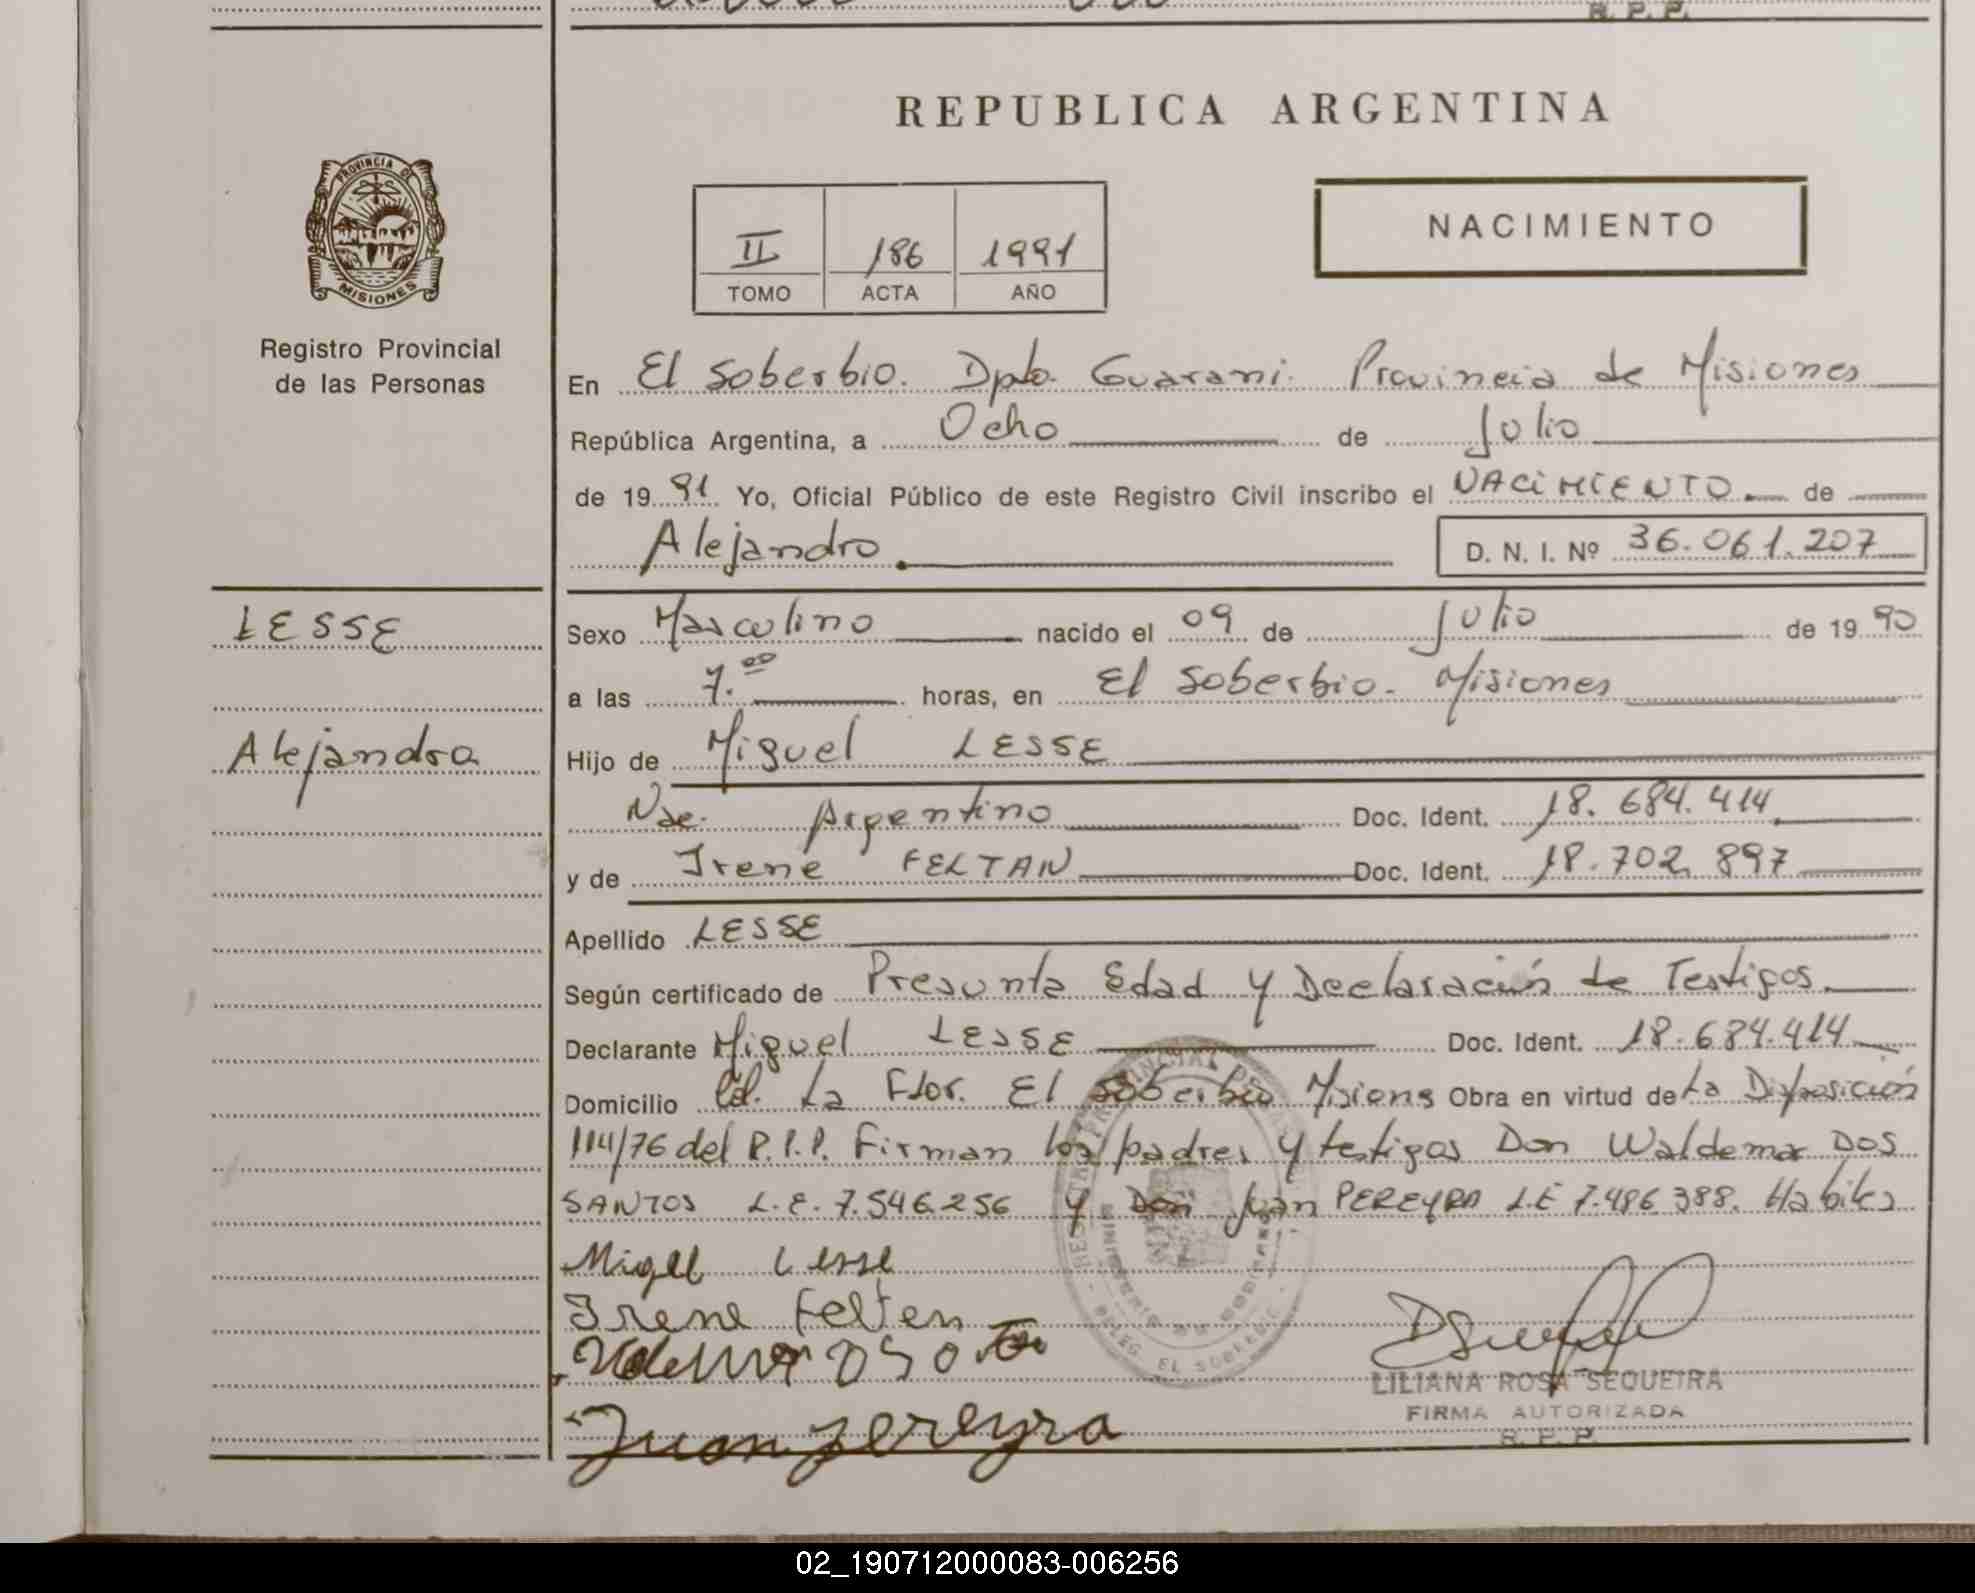 R. P. P.
REPUBLICA ARGENTINA
PROVINCIA DE
MISIONES
Registro Provincial
de las Personas
II 186 1991
TOMO ACTA AÑO
NACIMIENTO
En El Soberbio. Dpto. Guarani. Provincia de Misiones
República Argentina, a Ocho de Julio
de 1991 Yo, Oficial Público de este Registro Civil inscribo el NACIMIENTO. de
Alejandro. D. N. I. Nº 36.061.207
LESSE
Alejandro
Sexo Masculino nacido el 09 de Julio de 1990
a las 7.00 horas, en El Soberbio. Misiones
Hijo de Miguel LESSE
Nac. Argentino Doc. Ident. 18.684.414
y de Irene FELTAN Doc. Ident. 18.702.897
Apellido LESSE
Según certificado de Presunta Edad y Declaración de Testigos.
Declarante Miguel LESSE Doc. Ident. 18.684.414
Domicilio Col. La Flor. El Soberbio Misiones Obra en virtud de La Disposición
114/76 del R.P.P. Firman los padres y testigos Don Waldemar DOS
SANTOS L.E. 7.546.256 y Don Juan PEREYRA L.E 7.486.388. Habiles
Migel Lesse
Irene Felten
Juan pereyra
DELEG. EL SOBERBIO
LILIANA ROSA SEQUEIRA
FIRMA AUTORIZADA
R. P. P.
02_190712000083-006256